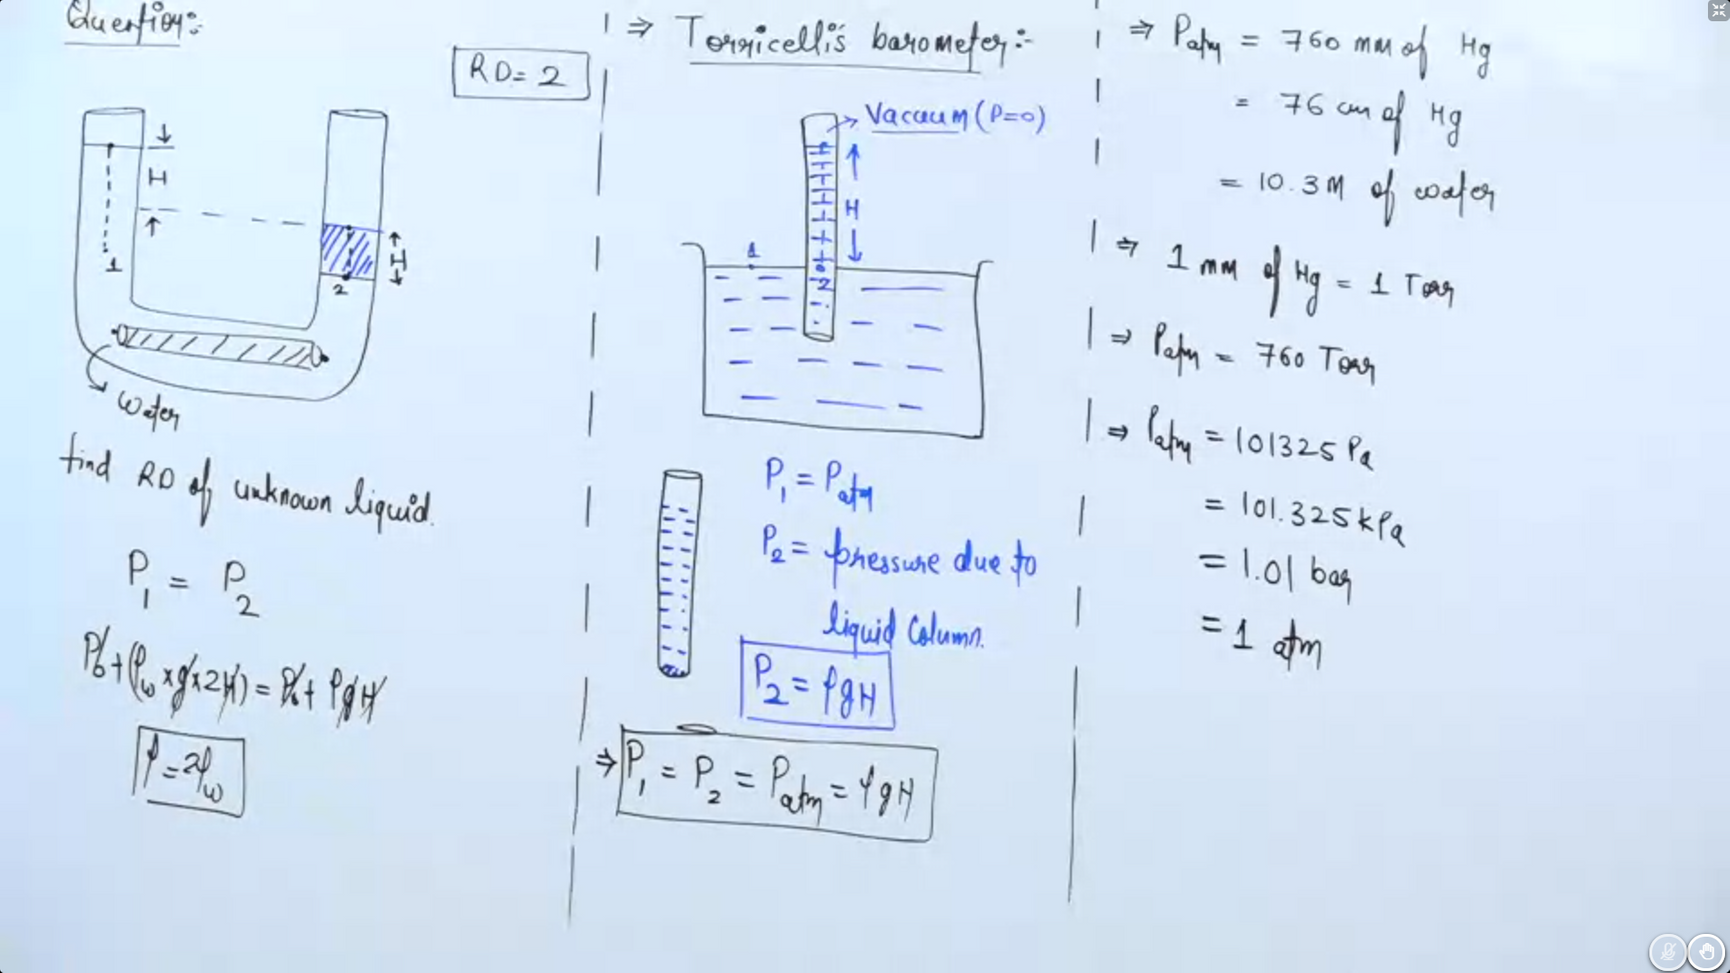 Question:-
RD= 2
H
H
1
2
Water
find RD of unknown liquid.
P₁ = P₂
P₀ + (ρw × g × 2H) = P₀ + ρgH
ρ = 2ρw
⇒ Torricelli's barometer:-
Vacuum (P=0)
H
1
2
P₁ = Patm
P₂ = pressure due to
liquid column.
P₂ = ρgH
⇒ P₁ = P₂ = Patm = ρgH
⇒ Patm = 760 mm of Hg
= 76 cm of Hg
= 10.3 M of water
⇒ 1 mm of Hg = 1 Torr
⇒ Patm = 760 Torr
⇒ Patm = 101325 Pa
= 101.325 kPa
= 1.01 bar
= 1 atm